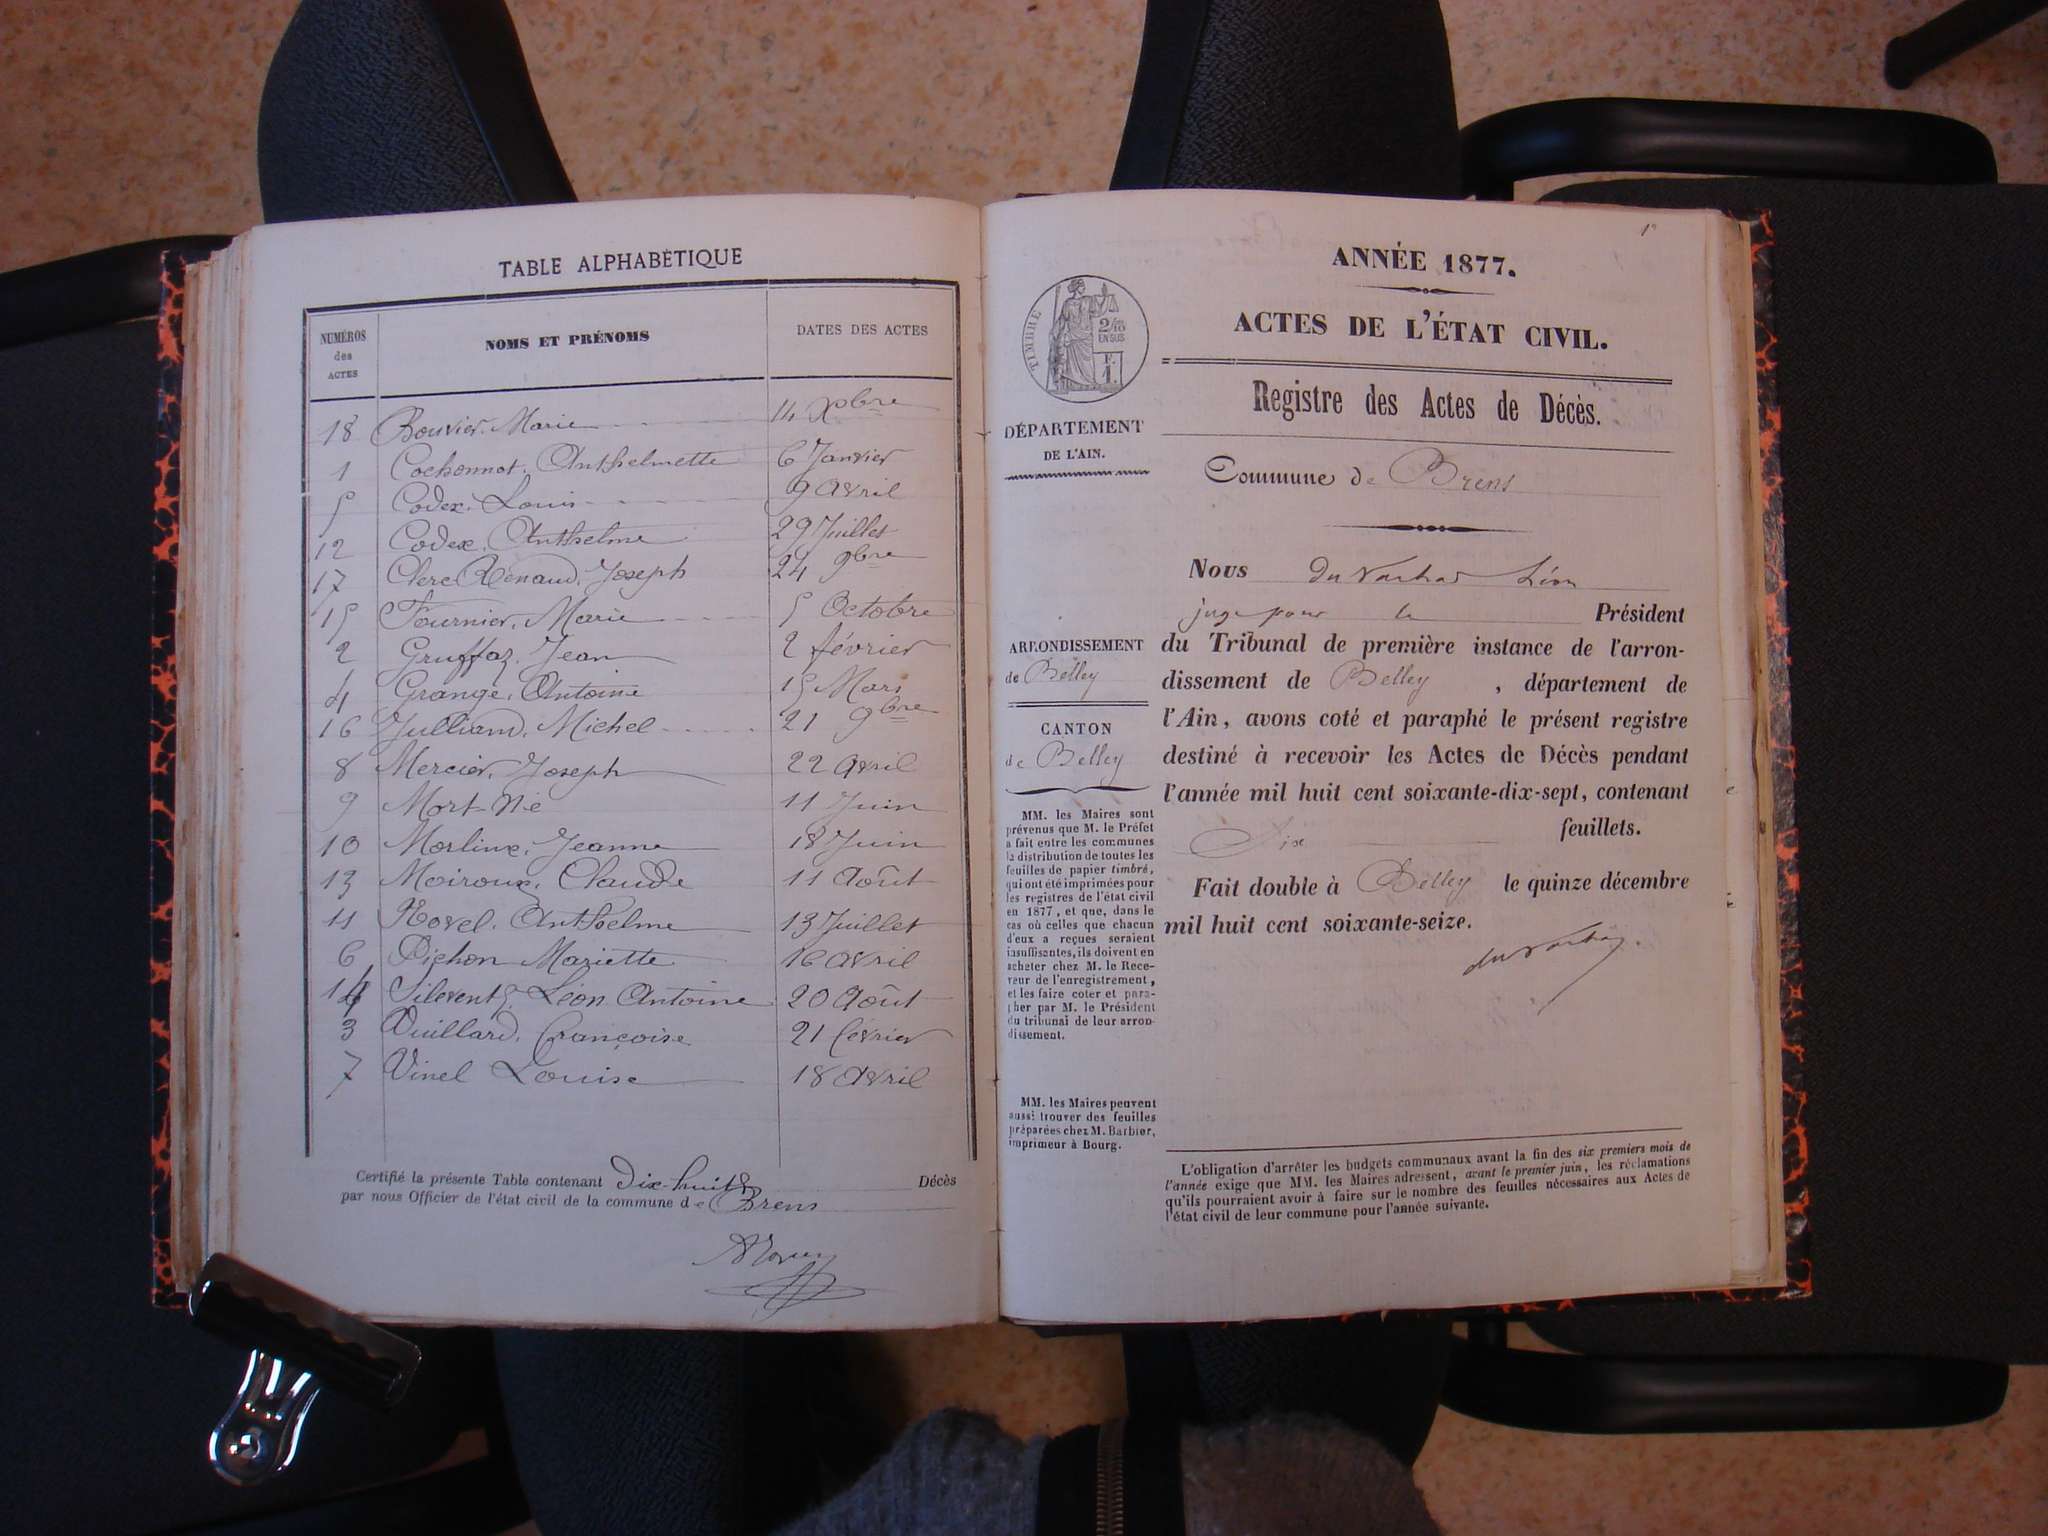 TABLE ALPHABÉTIQUE
NUMÉROS des ACTES NOMS ET PRÉNOMS DATES DES ACTES
18 Bouvier, Marie 14 Xbre
1 Cochonnot, Anthelmette 6 Janvier
5 Codex, Louis 9 avril
12 Codex, Anthelme 29 Juillet
17 Clerc Renaud, Joseph 24 9bre
15 Fournier, Marie 5 Octobre
2 Gruffaz, Jean 2 février
4 Grange, Antoine 15 Mars
16 Julliand, Michel 21 9bre
8 Mercier, Joseph 22 avril
9 Mort-Né 11 Juin
10 Morlinx, Jeanne 18 Juin
13 Moiroux, Claude 11 Août
11 Novel, Anthelme 13 Juillet
6 Pichon Mariette 16 avril
14 Silvent, Léon Antoine 20 Août
3 Vuillard, Françoise 21 février
7 Vinel Louise 18 avril
Certifié la présente Table contenant Dix-huit Décès
par nous Officier de l'état civil de la commune de Brens
1er
ANNÉE 1877.
ACTES DE L'ÉTAT CIVIL.
Registre des Actes de Décès.
Commune de Brens
TIMBRE
2/10 EN SUS
F. 1.
DÉPARTEMENT
DE L'AIN.
ARRONDISSEMENT
de Belley
CANTON
de Belley
MM. les Maires sont
prévenus que M. le Préfet
a fait entre les communes
la distribution de toutes les
feuilles de papier timbré,
qui ont été imprimées pour
les registres de l'état civil
en 1877, et que, dans le
cas où celles que chacun
d'eux a reçues seraient
insuffisantes, ils doivent en
acheter chez M. le Rece-
veur de l'enregistrement,
et les faire coter et para-
pher par M. le Président
du tribunal de leur arron-
dissement.
MM. les Maires peuvent
aussi trouver des feuilles
préparées chez M. Barbier,
imprimeur à Bourg.
Nous Léon
juge pour le Président
du Tribunal de première instance de l'arron-
dissement de Belley, département de
l'Ain, avons coté et paraphé le présent registre
destiné à recevoir les Actes de Décès pendant
l'année mil huit cent soixante-dix-sept, contenant
Six feuillets.
Fait double à Belley le quinze décembre
mil huit cent soixante-seize.
L'obligation d'arrêter les budgets communaux avant la fin des six premiers mois de
l'année exige que MM. les Maires adressent, avant le premier juin, les réclamations
qu'ils pourraient avoir à faire sur le nombre des feuilles nécessaires aux Actes de
l'état civil de leur commune pour l'année suivante.